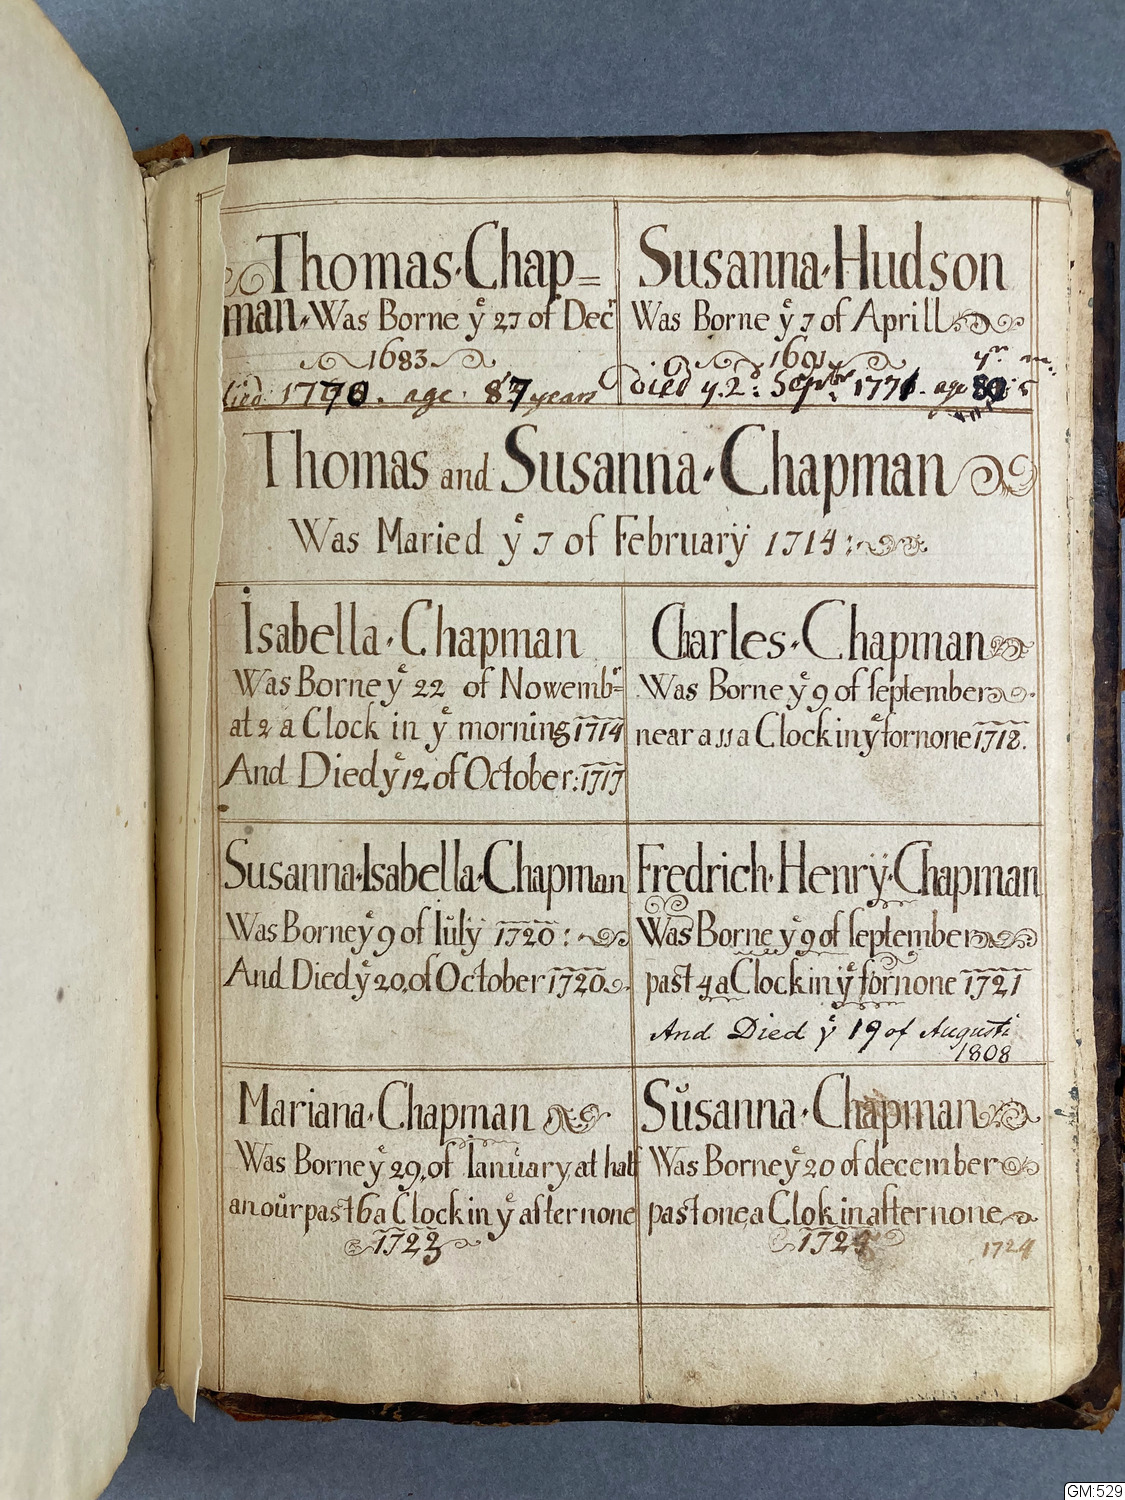 Thomas Chap=
man. Was Borne yᵉ 27 of Decʳ
1683
Died 1770. age. 87 years
Susanna Hudson
Was Borne yᵉ 7 of Aprill
1691
Died y. 2: Sepbr: 1771. age 80
Thomas and Susanna Chapman
Was Maried yᵉ 7 of February 1714:
Isabella Chapman
Was Borne yᵉ 22 of Nowembʳ=
at 2 a Clock in yᵉ morning 1714
And Died yᵉ 12 of October: 1717
Charles Chapman
Was Borne yᵉ 9 of september
near a 11 a Clock in yᵉ fornone 1718.
Susanna Isabella Chapman
Was Borne yᵉ 9 of Iuly 1720:
And Died yᵉ 20, of October 1720
Fredrich Henry Chapman
Was Borne yᵉ 9 of september
past 4 a Clock in yᵉ fornone 1721
And Died yᵉ 19 of Augusti
1808
Mariana Chapman
Was Borne yᵉ 29, of Ianuary, at half
an our past 6 a Clock in yᵉ afternone
1723
Susanna Chapman
Was Borne yᵉ 20 of december
past one, a Clok in afternone
1724
1724
GM:529